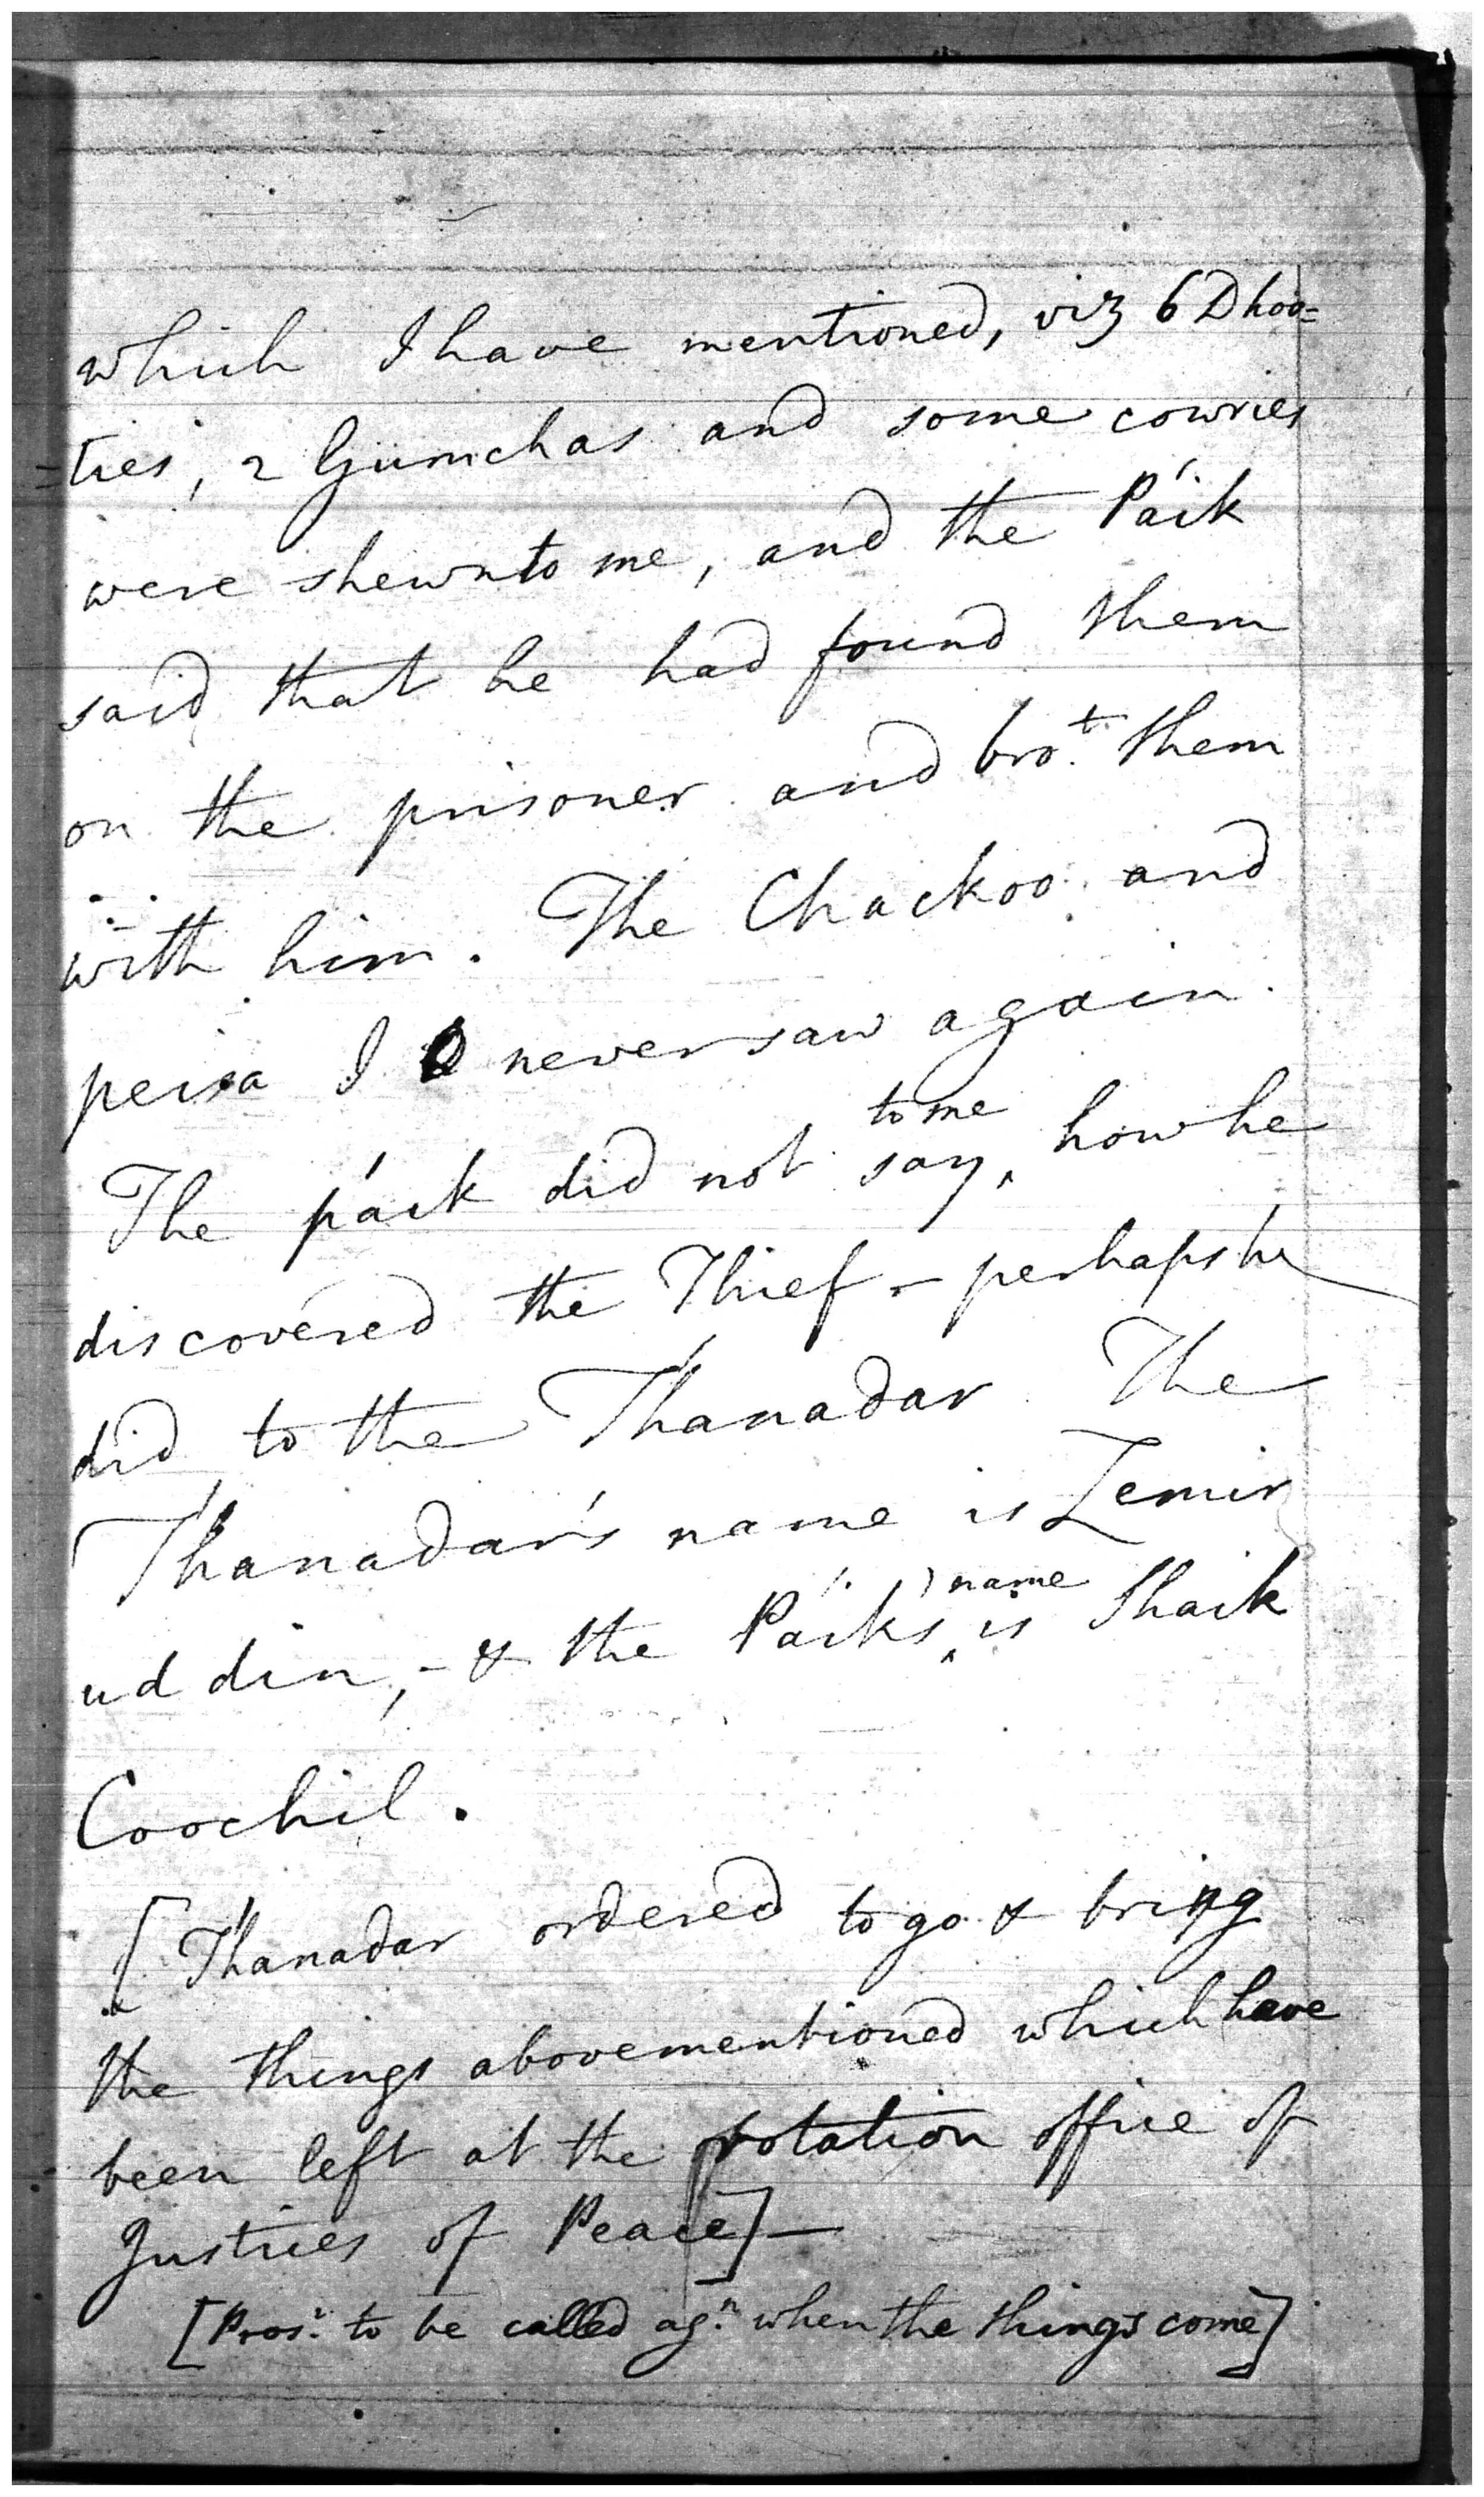 which I have mentioned, viz 6 Dhoo=
=ties, 2 Gumchas and some cowries
were shewn to me, and the Páik
said that he had found them
on the prisoner and bro.t them
with him. The Chackoo and
peisa I never saw again.
The páik did not say ‸ to me how he
discovered the Thief – perhaps he
did to the Thanadar The
Thanadar's name is Zemir
ud din, – & the Páik's ‸ name is Shaik
Coochil.
[Thanadar ordered to go & bring
the things abovementioned which have
been left at the rotation office of
Justices of Peace] —
[Pros.r to be called ag.n when the things come]